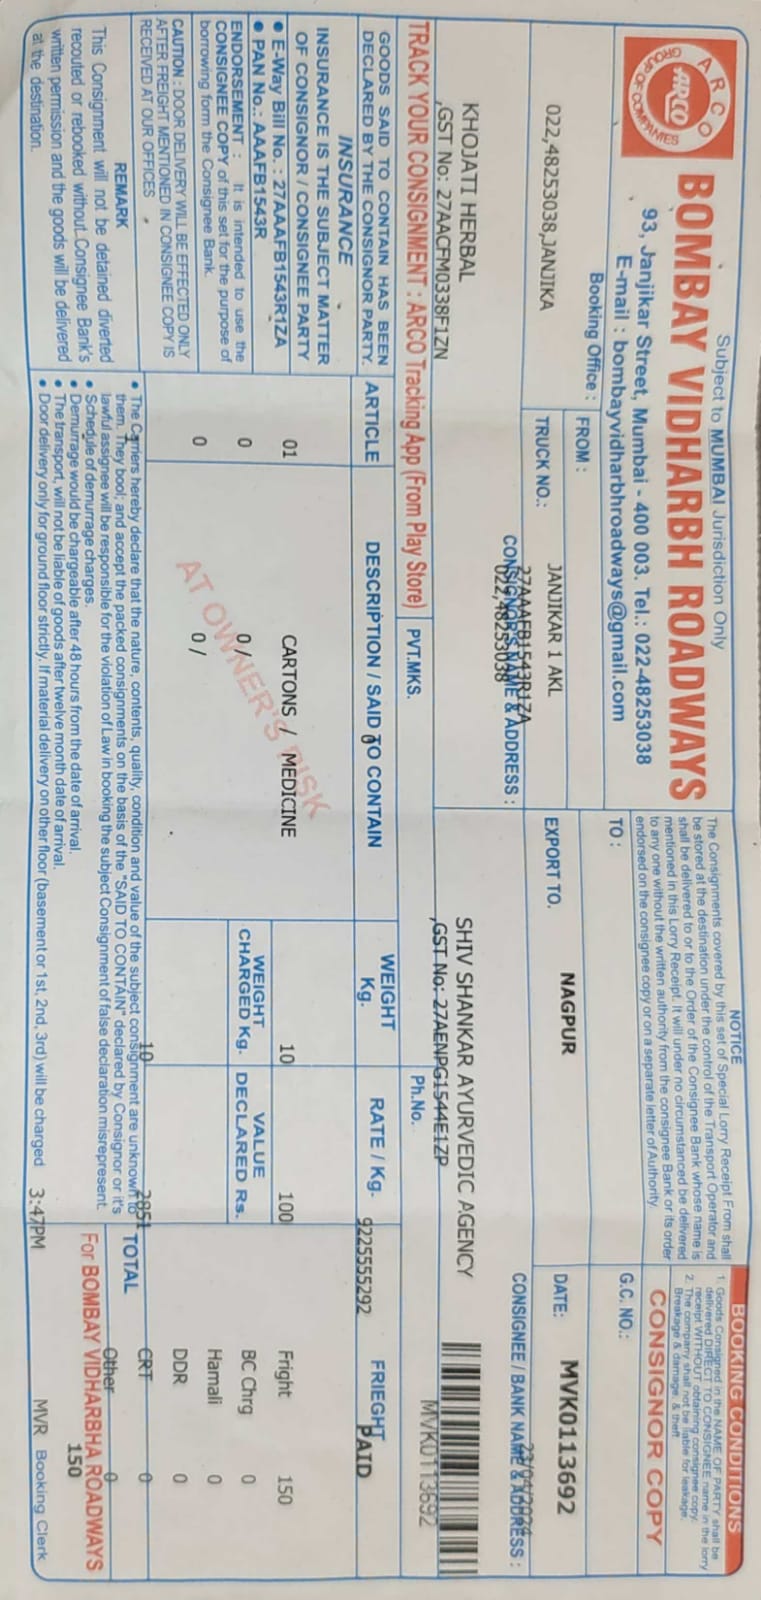 Subject to MUMBAI Jurisdiction Only
ARCO
ARCO
GROUP OF COMPANIES
BOMBAY VIDHARBH ROADWAYS
93, Janjikar Street, Mumbai - 400 003. Tel.: 022-48253038
E-mail : bombayvidharbhroadways@gmail.com
NOTICE
The Consignments covered by this set of Special Lorry Receipt From shall
be stored at the destination under the control of the Transport Operator and
shall be delivered to or to the Order of the Consignee Bank whose name is
mentioned in this Lorry Receipt. It will under no circumstanced be delivered
to any one without the written authority from the consignee Bank or its order
endorsed on the consignee copy or on a separate letter of Authority.
BOOKING CONDITIONS
1. Goods Consigned in the NAME OF PARTY shall be
delivered DIRECT TO CONSIGNEE name in the lorry
receipt WITHOUT obtaining consignee copy.
2. The company shall not be liable for leakage,
Breakage & damage. & theft.
CONSIGNOR COPY
Booking Office :
022,48253038,JANJIKA
FROM :
TO :
G.C. NO.:
TRUCK NO.:
JANJIKAR 1 AKL
EXPORT TO.
NAGPUR
DATE:
MVK0113692
27AAAFB1543R1ZA
CONSIGNOR'S NAME & ADDRESS :
022,48253038
23/04/2024
CONSIGNEE / BANK NAME & ADDRESS :
KHOJATI HERBAL
,GST No: 27AACFM0338F1ZN
SHIV SHANKAR AYURVEDIC AGENCY
,GST No: 27AENPG1544E1ZP
MVK0113692
TRACK YOUR CONSIGNMENT : ARCO Tracking App (From Play Store)
PVT.MKS.
Ph.No.
GOODS SAID TO CONTAIN HAS BEEN
DECLARED BY THE CONSIGNOR PARTY.
INSURANCE
INSURANCE IS THE SUBJECT MATTER
OF CONSIGNOR / CONSIGNEE PARTY
• E-Way Bill No. : 27AAAFB1543R1ZA
• PAN No.: AAAFB1543R
ENDORSEMENT : It is intended to use the
CONSIGNEE COPY of this set for the purpose of
borrowing form the Consignee Bank.
CAUTION : DOOR DELIVERY WILL BE EFFECTED ONLY
AFTER FREIGHT MENTIONED IN CONSIGNEE COPY IS
RECEIVED AT OUR OFFICES
REMARK
This Consignment will not be detained diverted
recouted or rebooked without Consignee Bank's
written permission and the goods will be delivered
at the destination.
ARTICLE
DESCRIPTION / SAID TO CONTAIN
0
WEIGHT
Kg.
RATE / Kg.
9225555292
FRIEGHT
PAID
01
CARTONS / MEDICINE
10
100
Fright 150
0
0 /
WEIGHT
CHARGED Kg.
VALUE
DECLARED Rs.
BC Chrg 0
Hamali 0
0
0 /
DDR 0
AT OWNER'S RISK
1
10
2851
CRT 0
TOTAL
Other 0
• The Carriers hereby declare that the nature, contents, quality, condition and value of the subject consignment are unknown to
them. They bool; and accept the packed consignments on the basis of the "SAID TO CONTAIN" declared by Consignor or it's
lawful assignee will be responsible for the violation of Law in booking the subject Consignment of false declaration misrepresent.
• Schedule of demurrage charges.
• Demurrage would be chargeable after 48 hours from the date of arrival.
• The transport, will not be liable of goods after twelve month date of arrival.
• Door delivery only for ground floor strictly. If material delivery on other floor (basement or 1st, 2nd, 3rd) will be charged
For BOMBAY VIDHARBHA ROADWAYS
150
3:47PM
MVR Booking Clerk